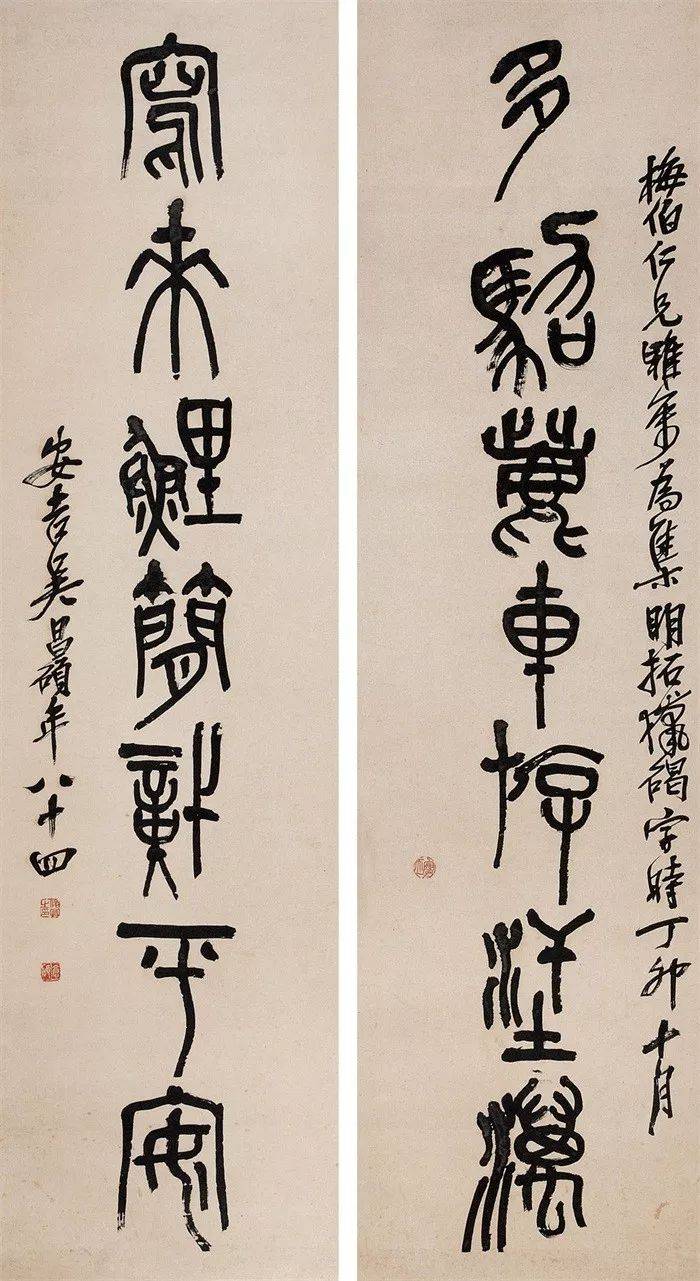 梅伯仁兄雅屬為集明拓獵碣字時丁卯十月
多鹿車游汪澫
寫來鯉簡平安
安吉吳昌碩年八十四